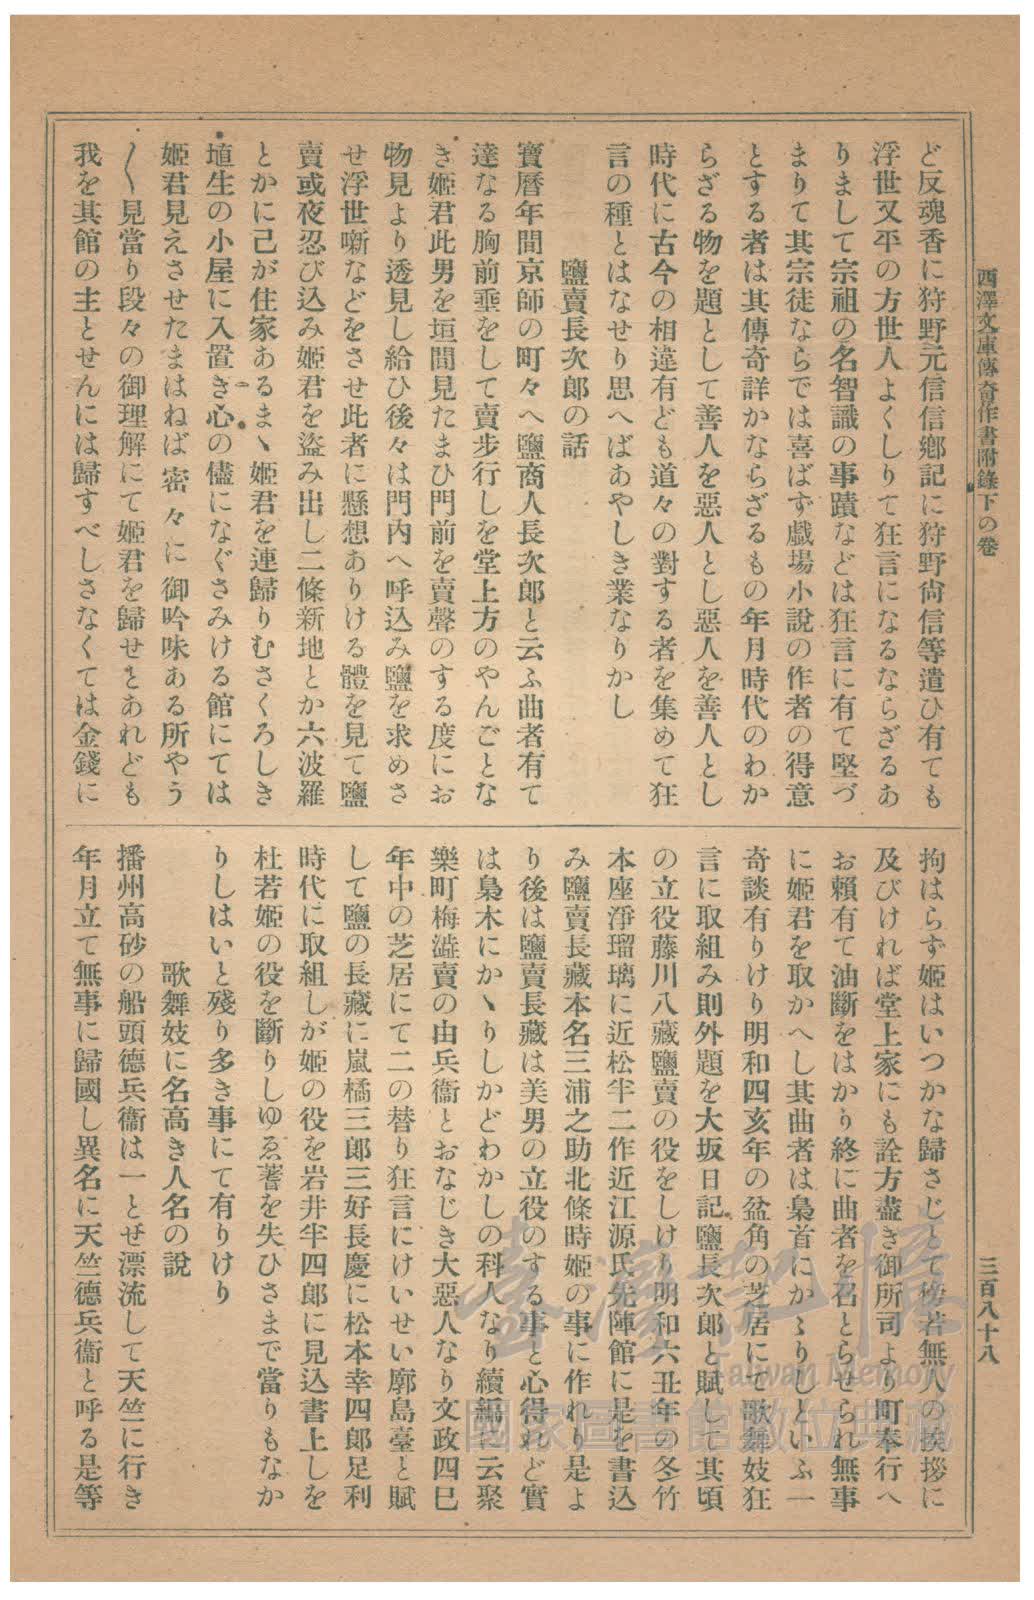 西澤文庫傳奇作書附錄下の卷
三百八十八
ど反魂香に狩野元信信鄕記に狩野尙信等遣ひ有ても
浮世又平の方世人よくしりて狂言になるならざるあ
りまして宗祖の名智識の事蹟などは狂言に有て堅づ
まりて其宗徒ならでは喜ばず戲場小說の作者の得意
とする者は其傳奇詳かならざるもの年月時代のわか
らざる物を題として善人を惡人とし惡人を善人とし
時代に古今の相違有ども道々の對する者を集めて狂
言の種とはなせり思へばあやしき業なりかし
鹽賣長次郎の話
寶曆年間京師の町々へ鹽商人長次郎と云ふ曲者有て
達なる胸前垂をして賣步行しを堂上方のやんごとな
き姬君此男を垣間見たまひ門前を賣聲のする度にお
物見より透見し給ひ後々は門內へ呼込み鹽を求めさ
せ浮世噺などをさせ此者に懸想ありける體を見て鹽
賣或夜忍び込み姬君を盜み出し二條新地とか六波羅
とかに己が住家あるまゝ姬君を連歸りむさくろしき
埴生の小屋に入置き心の儘になぐさみける館にては
姬君見えさせたまはねば密々に御吟味ある所やう
〱見當り段々の御理解にて姬君を歸せとあれども
我を其館の主とせんには歸すべしさなくては金錢に
拘はらず姬はいつかな歸さじとて傍若無人の挨拶に
及びければ堂上家にも詮方盡き御所司より町奉行へ
お賴有て油斷をはかり終に曲者を召とらせられ無事
に姬君を取かへし其曲者は梟首にかゝりしといふ一
奇談有りけり明和四亥年の盆角の芝居にて歌舞妓狂
言に取組み則外題を大坂日記鹽長次郎と賦して其頃
の立役藤川八藏鹽賣の役をしけり明和六丑年の冬竹
本座淨瑠璃に近松半二作近江源氏先陣館に是を書込
み鹽賣長藏本名三浦之助北條時姬の事に作れり是よ
り後は鹽賣長藏は美男の立役のする事と心得れど實
は梟木にかゝりしかどわかしの科人なり續編に云聚
樂町梅澁賣の由兵衞とおなじき大惡人なり文政四巳
年中の芝居にて二の替り狂言にけいせい廓島臺と賦
して鹽の長藏に嵐橘三郎三好長慶に松本幸四郎足利
時代に取組しが姬の役を岩井半四郎に見込書上しを
杜若姬の役を斷りしゆゑ著を失ひさまで當りもなか
りしはいと殘り多き事にて有りけり
歌舞妓に名高き人名の說
播州高砂の船頭德兵衞は一とせ漂流して天竺に行き
年月立て無事に歸國し異名に天竺德兵衞と呼る是等
臺灣記憶
Taiwan Memory
國家圖書館數位典藏